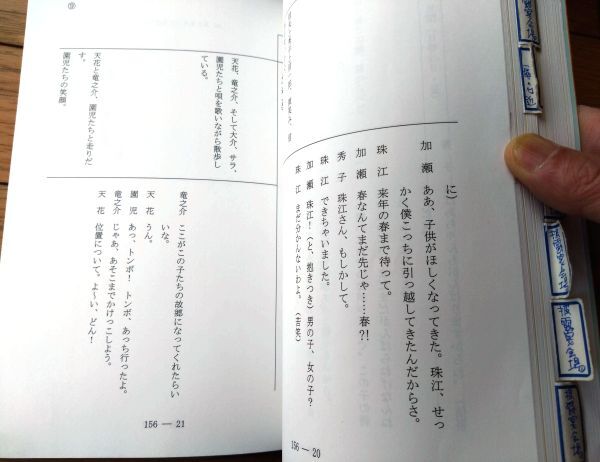 に）
加　瀬　ああ、子供がほしくなってきた。珠江、せっ
かく僕こっちに引っ越してきたんだからさ。
珠　江　来年の春まで待って。
加　瀬　春なんてまだ先じゃ……春?!
秀　子　珠江さん、もしかして。
珠　江　できちゃいました。
加　瀬　珠江！（と、抱きつき）男の子、女の子？
珠　江　まだ分かんないわよ。（苦笑）
156 ― 20
天花、竜之介、そして大介、サラ、
園児たちと唄を歌いながら散歩し
ている。
竜之介　ここがこの子たちの故郷になってくれたらい
いな。
天　花　うん。
園　児　あっ、トンボ！　トンボ、あっち行ったよ。
竜之介　じゃあ、あそこまでかけっこしよう。
天　花　位置について。よ～い、どん！
天花と竜之介、園児たちと走りだ
す。
園児たちの笑顔。
156 ― 21
披露宴会場
披露宴会場
披露宴会場